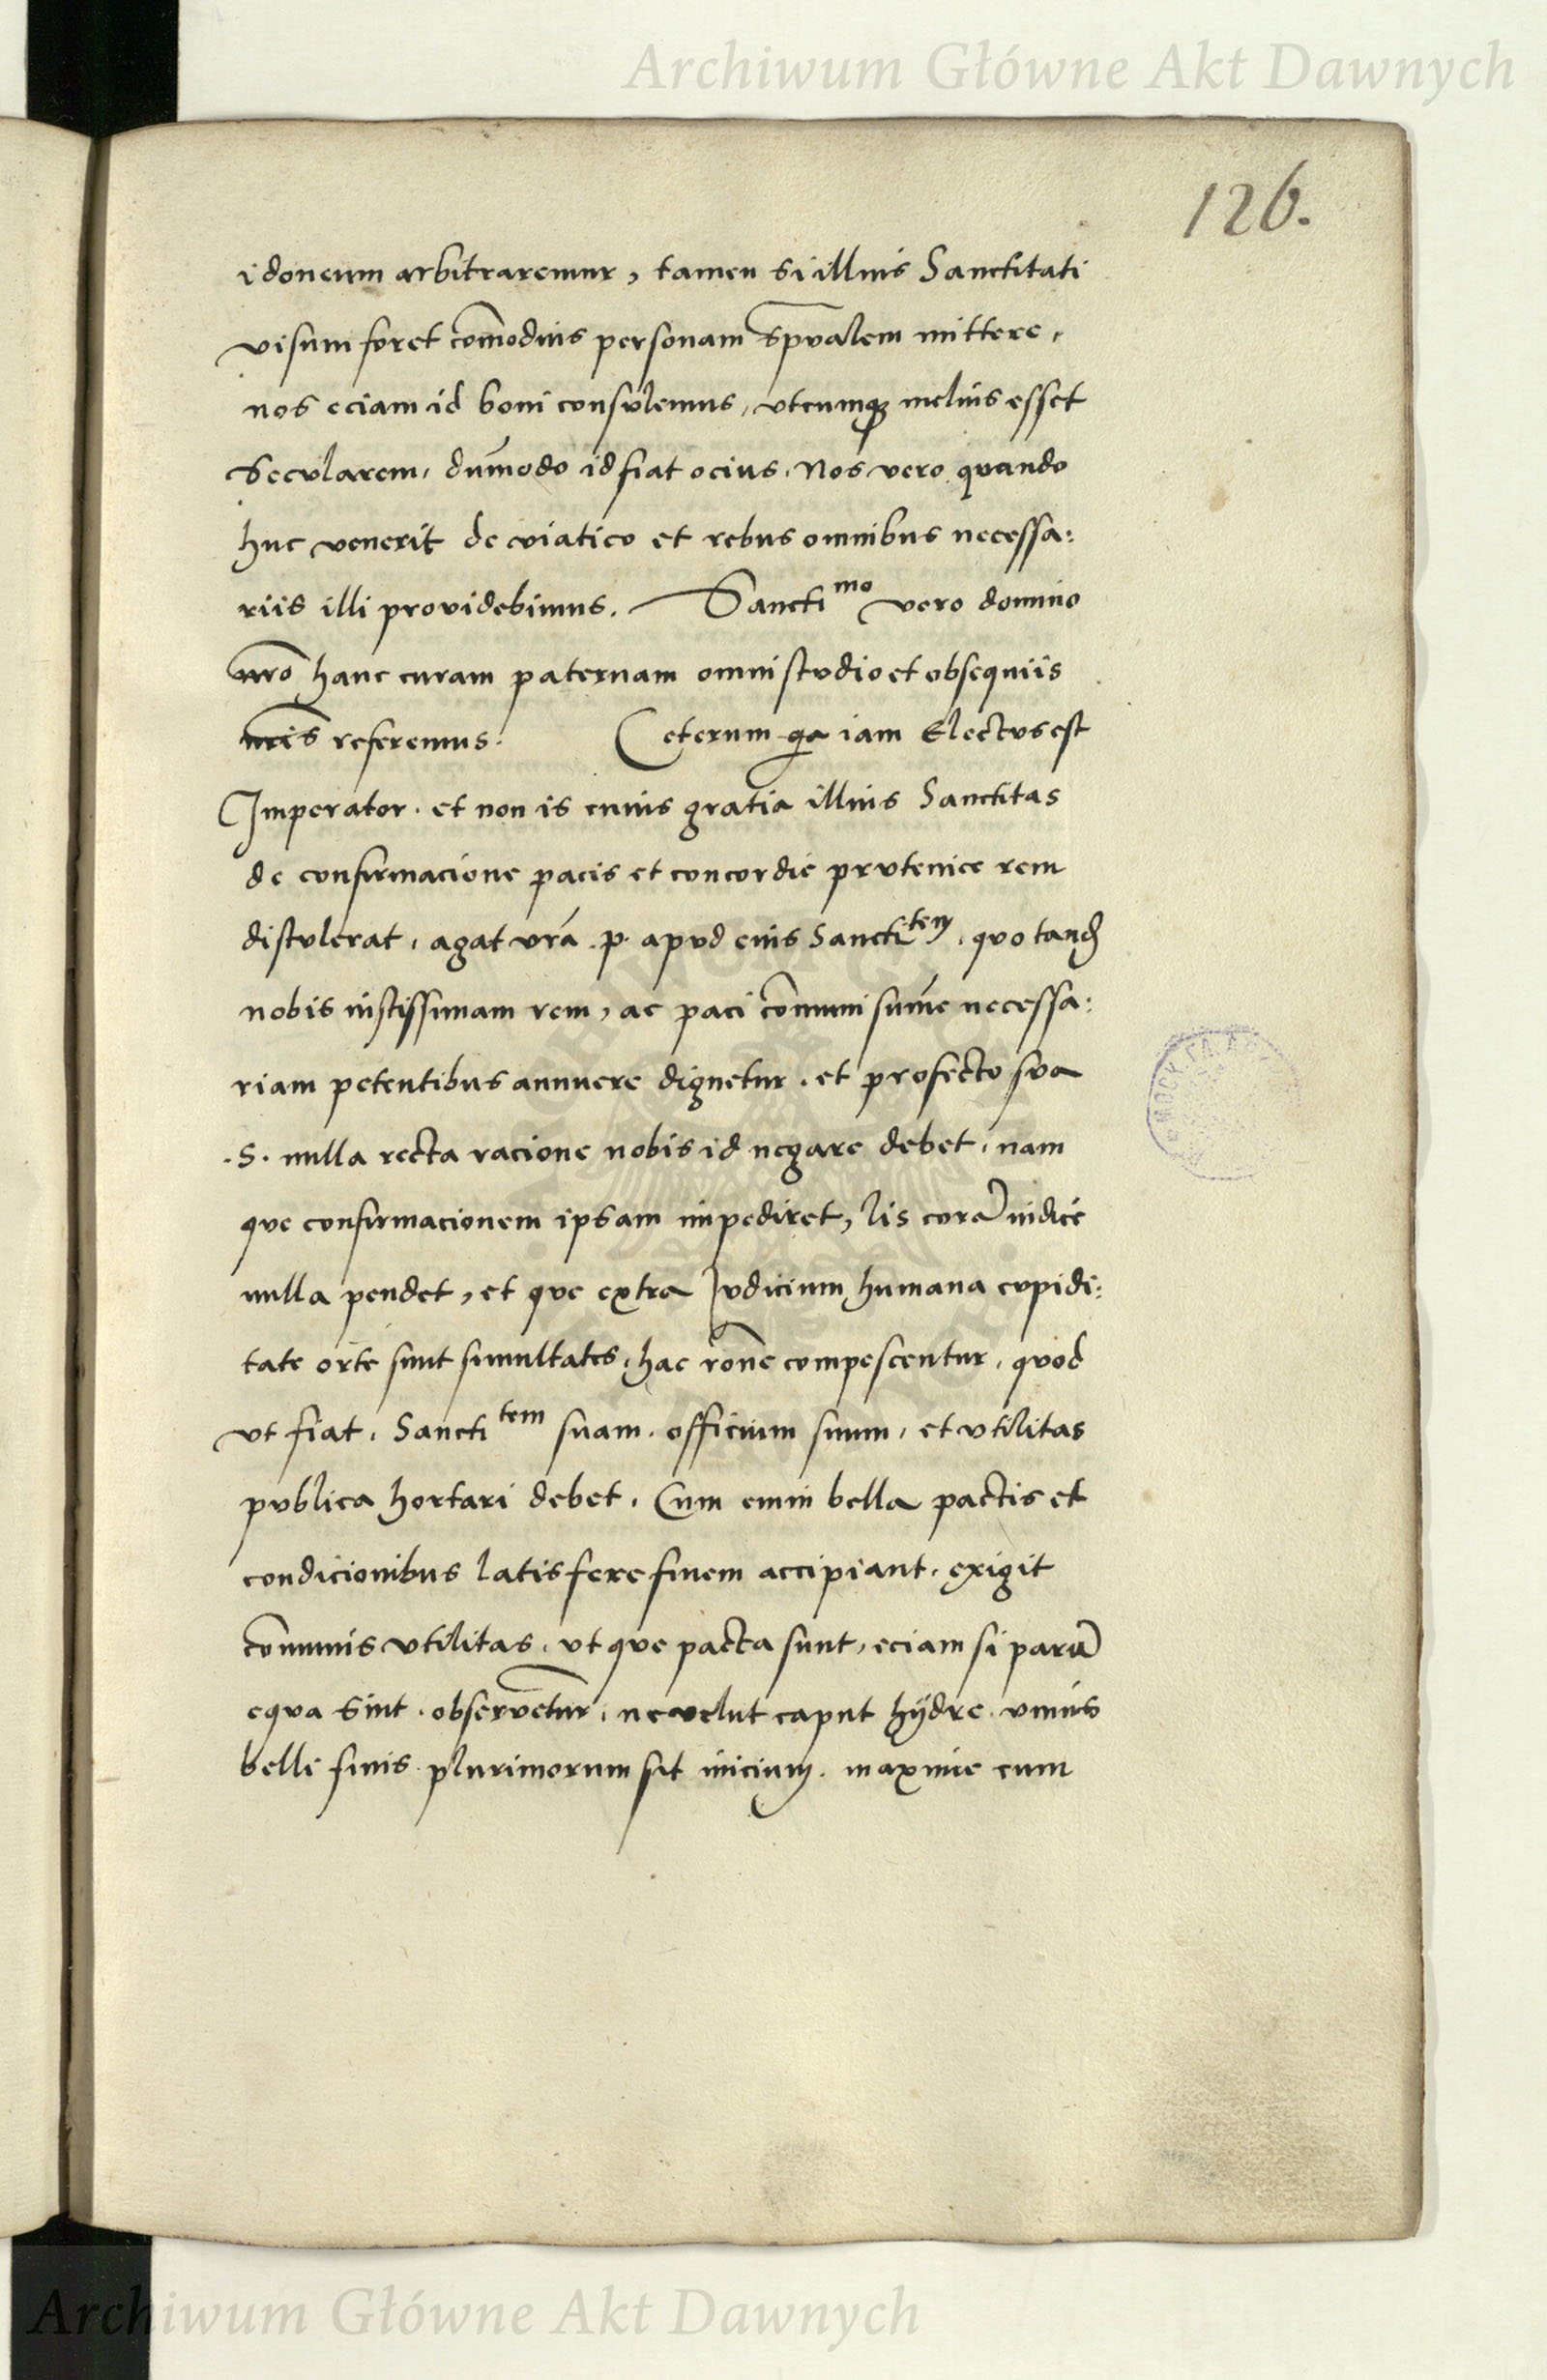 Archiwum Główne Akt Dawnych
126.
idoneum arbitraremur, tamen si illius Sanctitati
visum foret com̄odius personam sp̄ualem mittere,
nos eciam id boni consulemus, utcumq3 melius esset
Secularem, dum̄odo id fiat ocius. Nos vero quando
huc venerit de viatico et rebus omnibus necessa:
riis illi providebimus. Sancti^mo vero domino
nr̄o hanc curam paternam omni studio et obsequiis
nr̄is referemus. Ceterum qa iam Electus est
Imperator. et non is cuius gratia illius Sanctitas
de confirmacione pacis et concordie prutenice rem
distulerat, agat vrā .p. apud eius Sancti^tem, quo tand
nobis iustissimam rem, ac paci com̄uni sum̄e necessa:
riam petentibus annuere dignetur. et profecto sua
.S. nulla recta racione nobis id negare debet, nam
que confirmacionem ipsam impediret, lis corā iudice
nulla pendet, et que extra Iudicium humana cupidi:
tate orte sunt simultates, hac rōne compescentur, quod
ut fiat, Sancti^tem suam. officium suum, et utilitas
publica hortari debet. Cum enim bella pactis et
condicionibus latis fere finem accipiant, exigit
com̄unis utilitas, ut que pacta sunt, eciam si parū
equa sint. observētur, ne velut caput hÿdre, unius
belli finis plurimorum sit inicium. maxime cum
Archiwum Główne Akt Dawnych